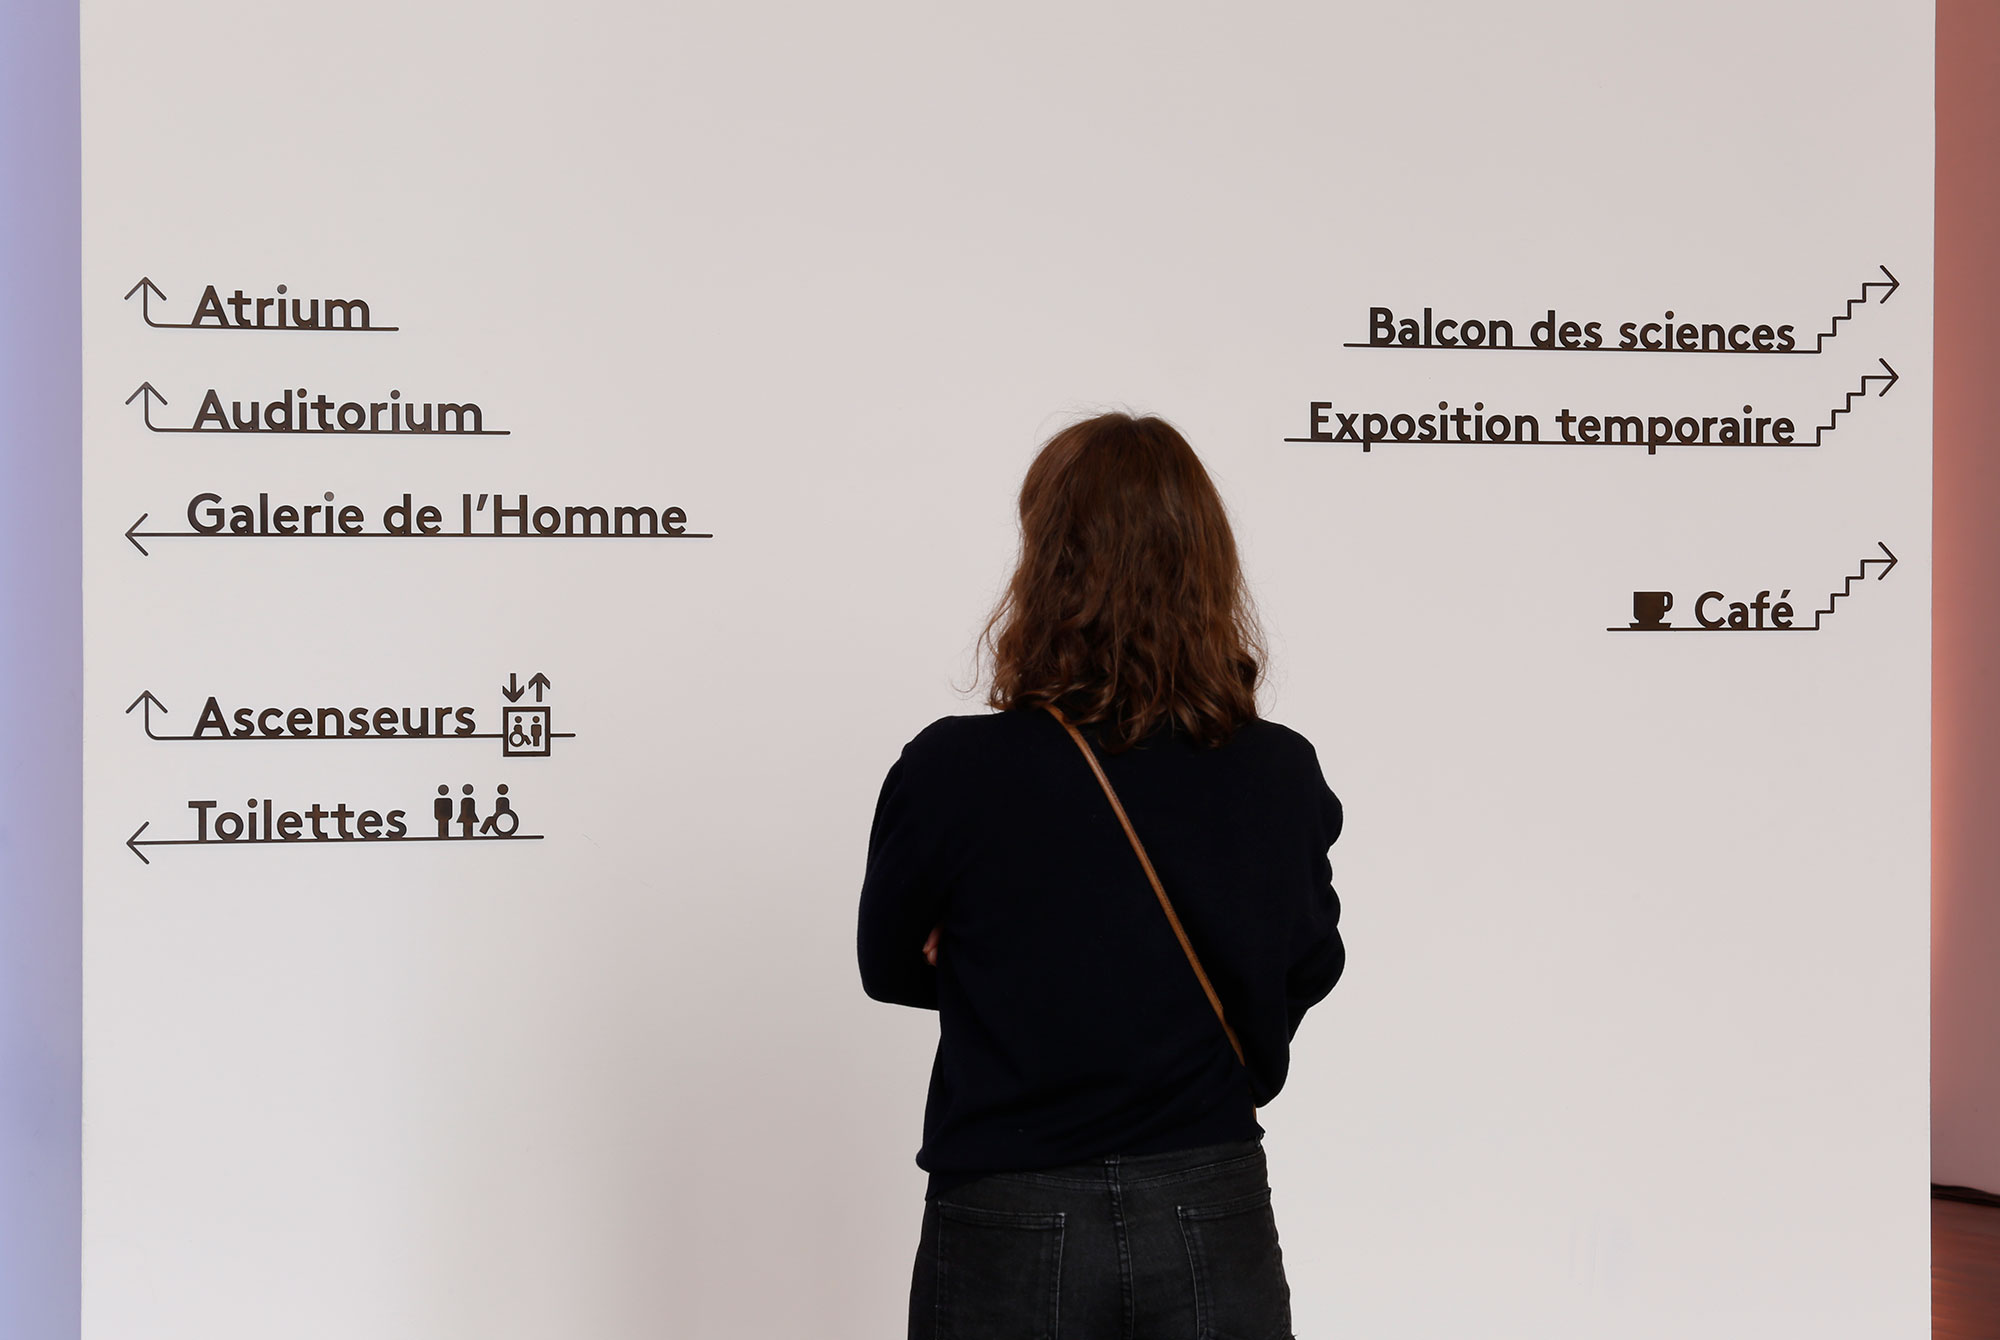 Atrium
Auditorium
Galerie de l’Homme
Ascenseurs
Toilettes
Balcon des sciences
Exposition temporaire
Café